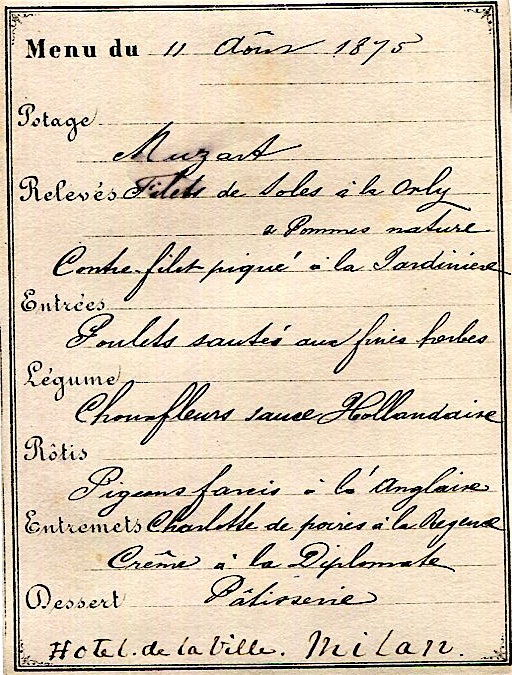 Menu du 11 Août 1875
Potage
Mozart
Relevés Filets de Soles à la Orly
& Pommes nature
Contre-filet piqué à la Jardinière
Entrées
Poulets sautés aux fines herbes
Légume
Chouxfleurs sauce Hollandaise
Rôtis
Pigeons farcis à l'Anglaise
Entremets Charlotte de poires à la Régence
Crême à la Diplomate
Dessert Pâtisserie
Hotel. de la Ville. Milan.